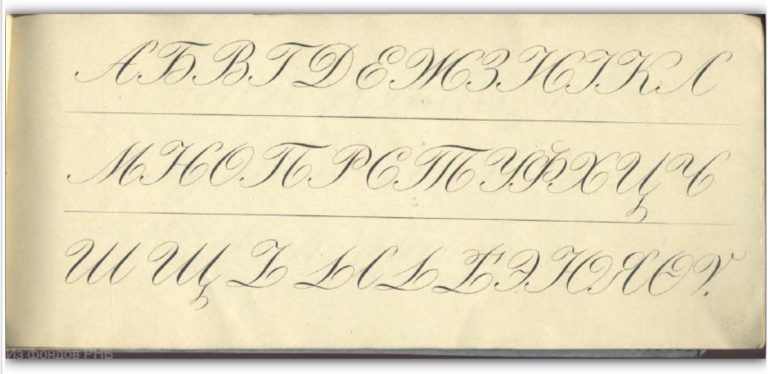 А Б В Г Д Е Ж З И І К Л
М Н О П Р С Т У Ф Х Ц Ч
Ш Щ Ъ Ы Ь Ѣ Э Ю Я Ѳ Ѵ.
Из фондов РНБ